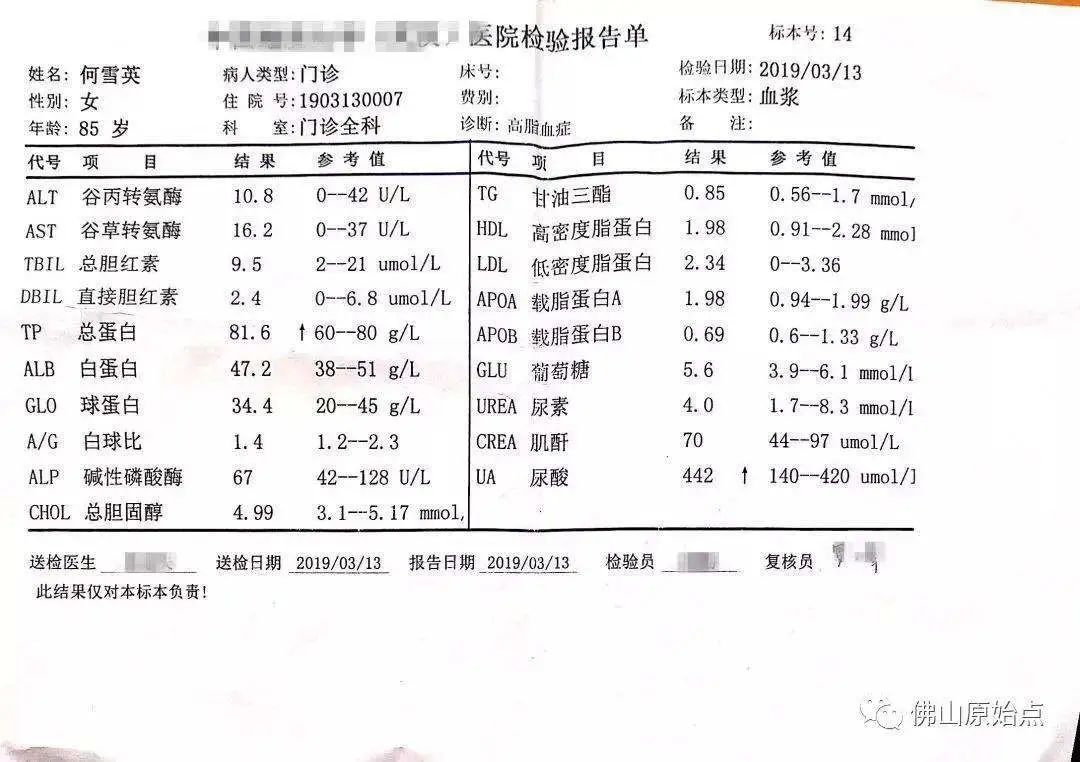 医院检验报告单 标本号: 14
姓名: 何雪英 病人类型: 门诊 床号: 检验日期: 2019/03/13
性别: 女 住院号: 1903130007 费别: 标本类型: 血浆
年龄: 85 岁 科室: 门诊全科 诊断: 高脂血症 备注:
代号 项目 结果 参考值 代号 项目 结果 参考值
ALT 谷丙转氨酶 10.8 0--42 U/L TG 甘油三酯 0.85 0.56--1.7 mmol/
AST 谷草转氨酶 16.2 0--37 U/L HDL 高密度脂蛋白 1.98 0.91--2.28 mmol
TBIL 总胆红素 9.5 2--21 umol/L LDL 低密度脂蛋白 2.34 0--3.36
DBIL 直接胆红素 2.4 0--6.8 umol/L APOA 载脂蛋白A 1.98 0.94--1.99 g/L
TP 总蛋白 81.6 ↑ 60--80 g/L APOB 载脂蛋白B 0.69 0.6--1.33 g/L
ALB 白蛋白 47.2 38--51 g/L GLU 葡萄糖 5.6 3.9--6.1 mmol/l
GLO 球蛋白 34.4 20--45 g/L UREA 尿素 4.0 1.7--8.3 mmol/l
A/G 白球比 1.4 1.2--2.3 CREA 肌酐 70 44--97 umol/L
ALP 碱性磷酸酶 67 42--128 U/L UA 尿酸 442 ↑ 140--420 umol/l
CHOL 总胆固醇 4.99 3.1--5.17 mmol,
送检医生 送检日期 2019/03/13 报告日期 2019/03/13 检验员 复核员
此结果仅对本标本负责!
佛山原始点